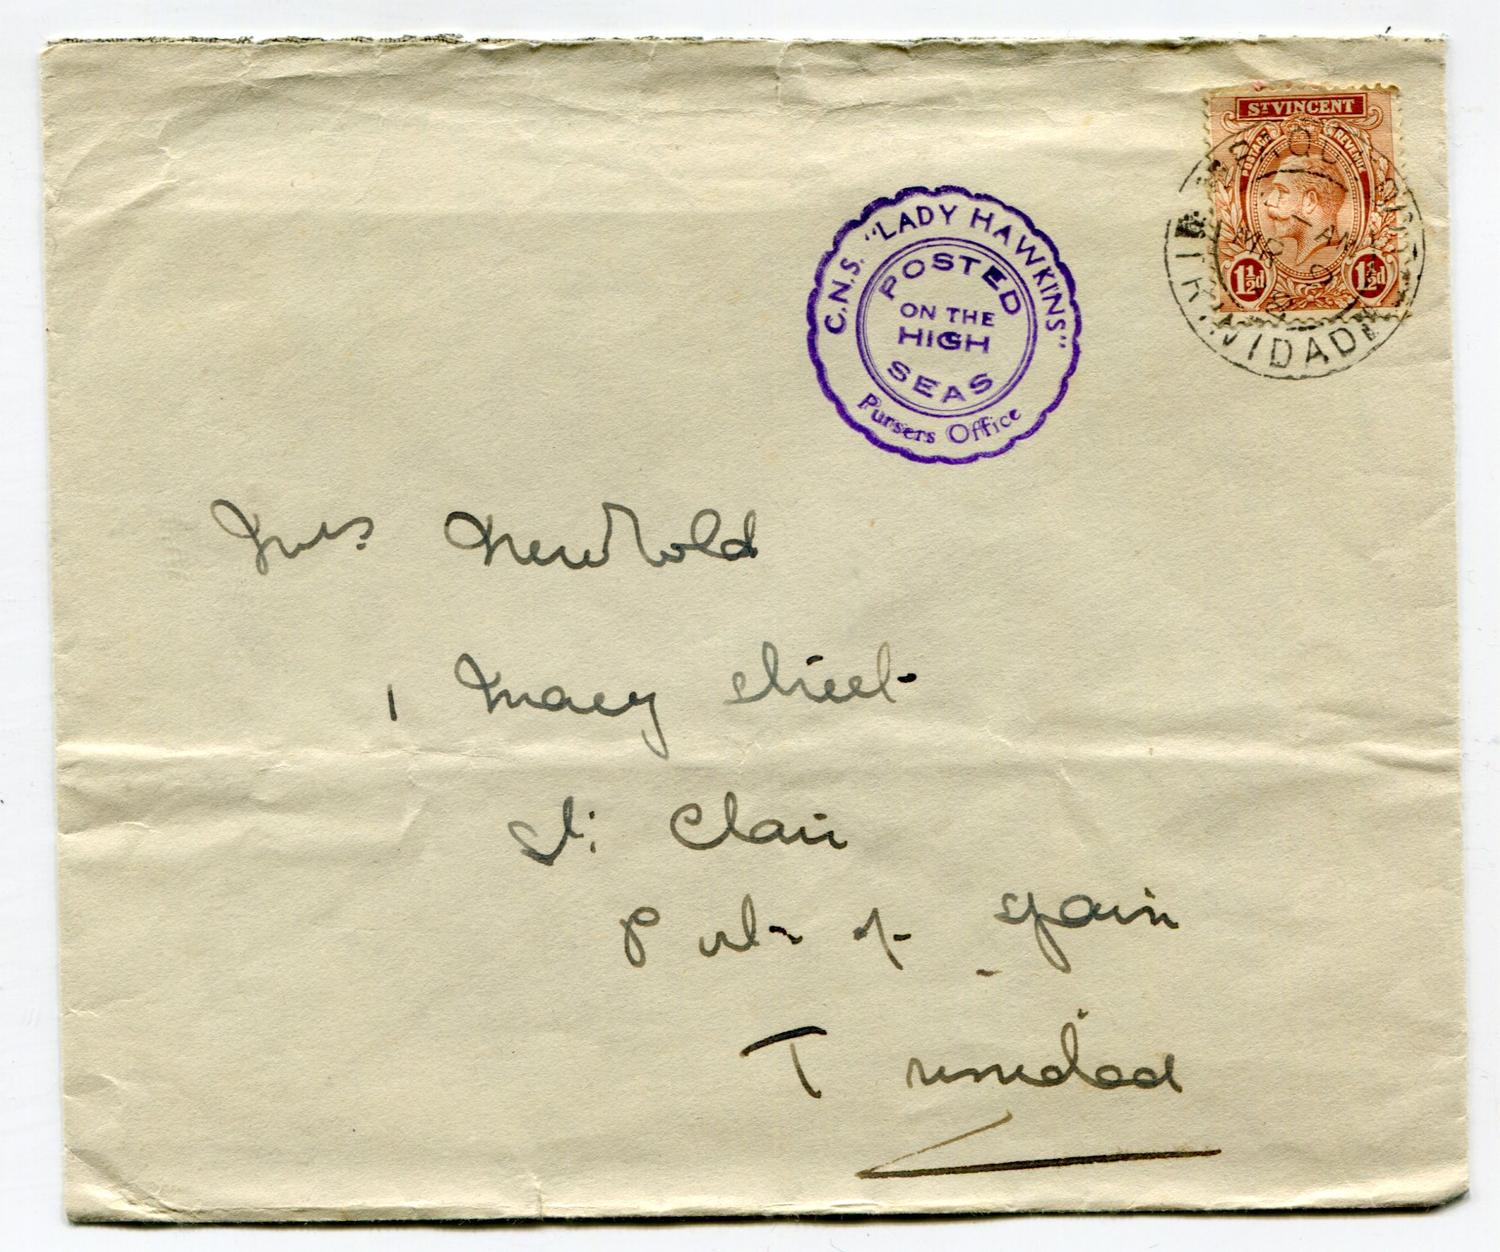 ST VINCENT
POSTAGE
REVENUE
1½d 1½d
7 AM
MR 9
TRINIDAD
C.N.S. "LADY HAWKINS"
POSTED
ON THE
HIGH
SEAS
Pursers Office
Mrs Newbold
1 Mary Street
St: Clair
Port of Spain
Trinidad